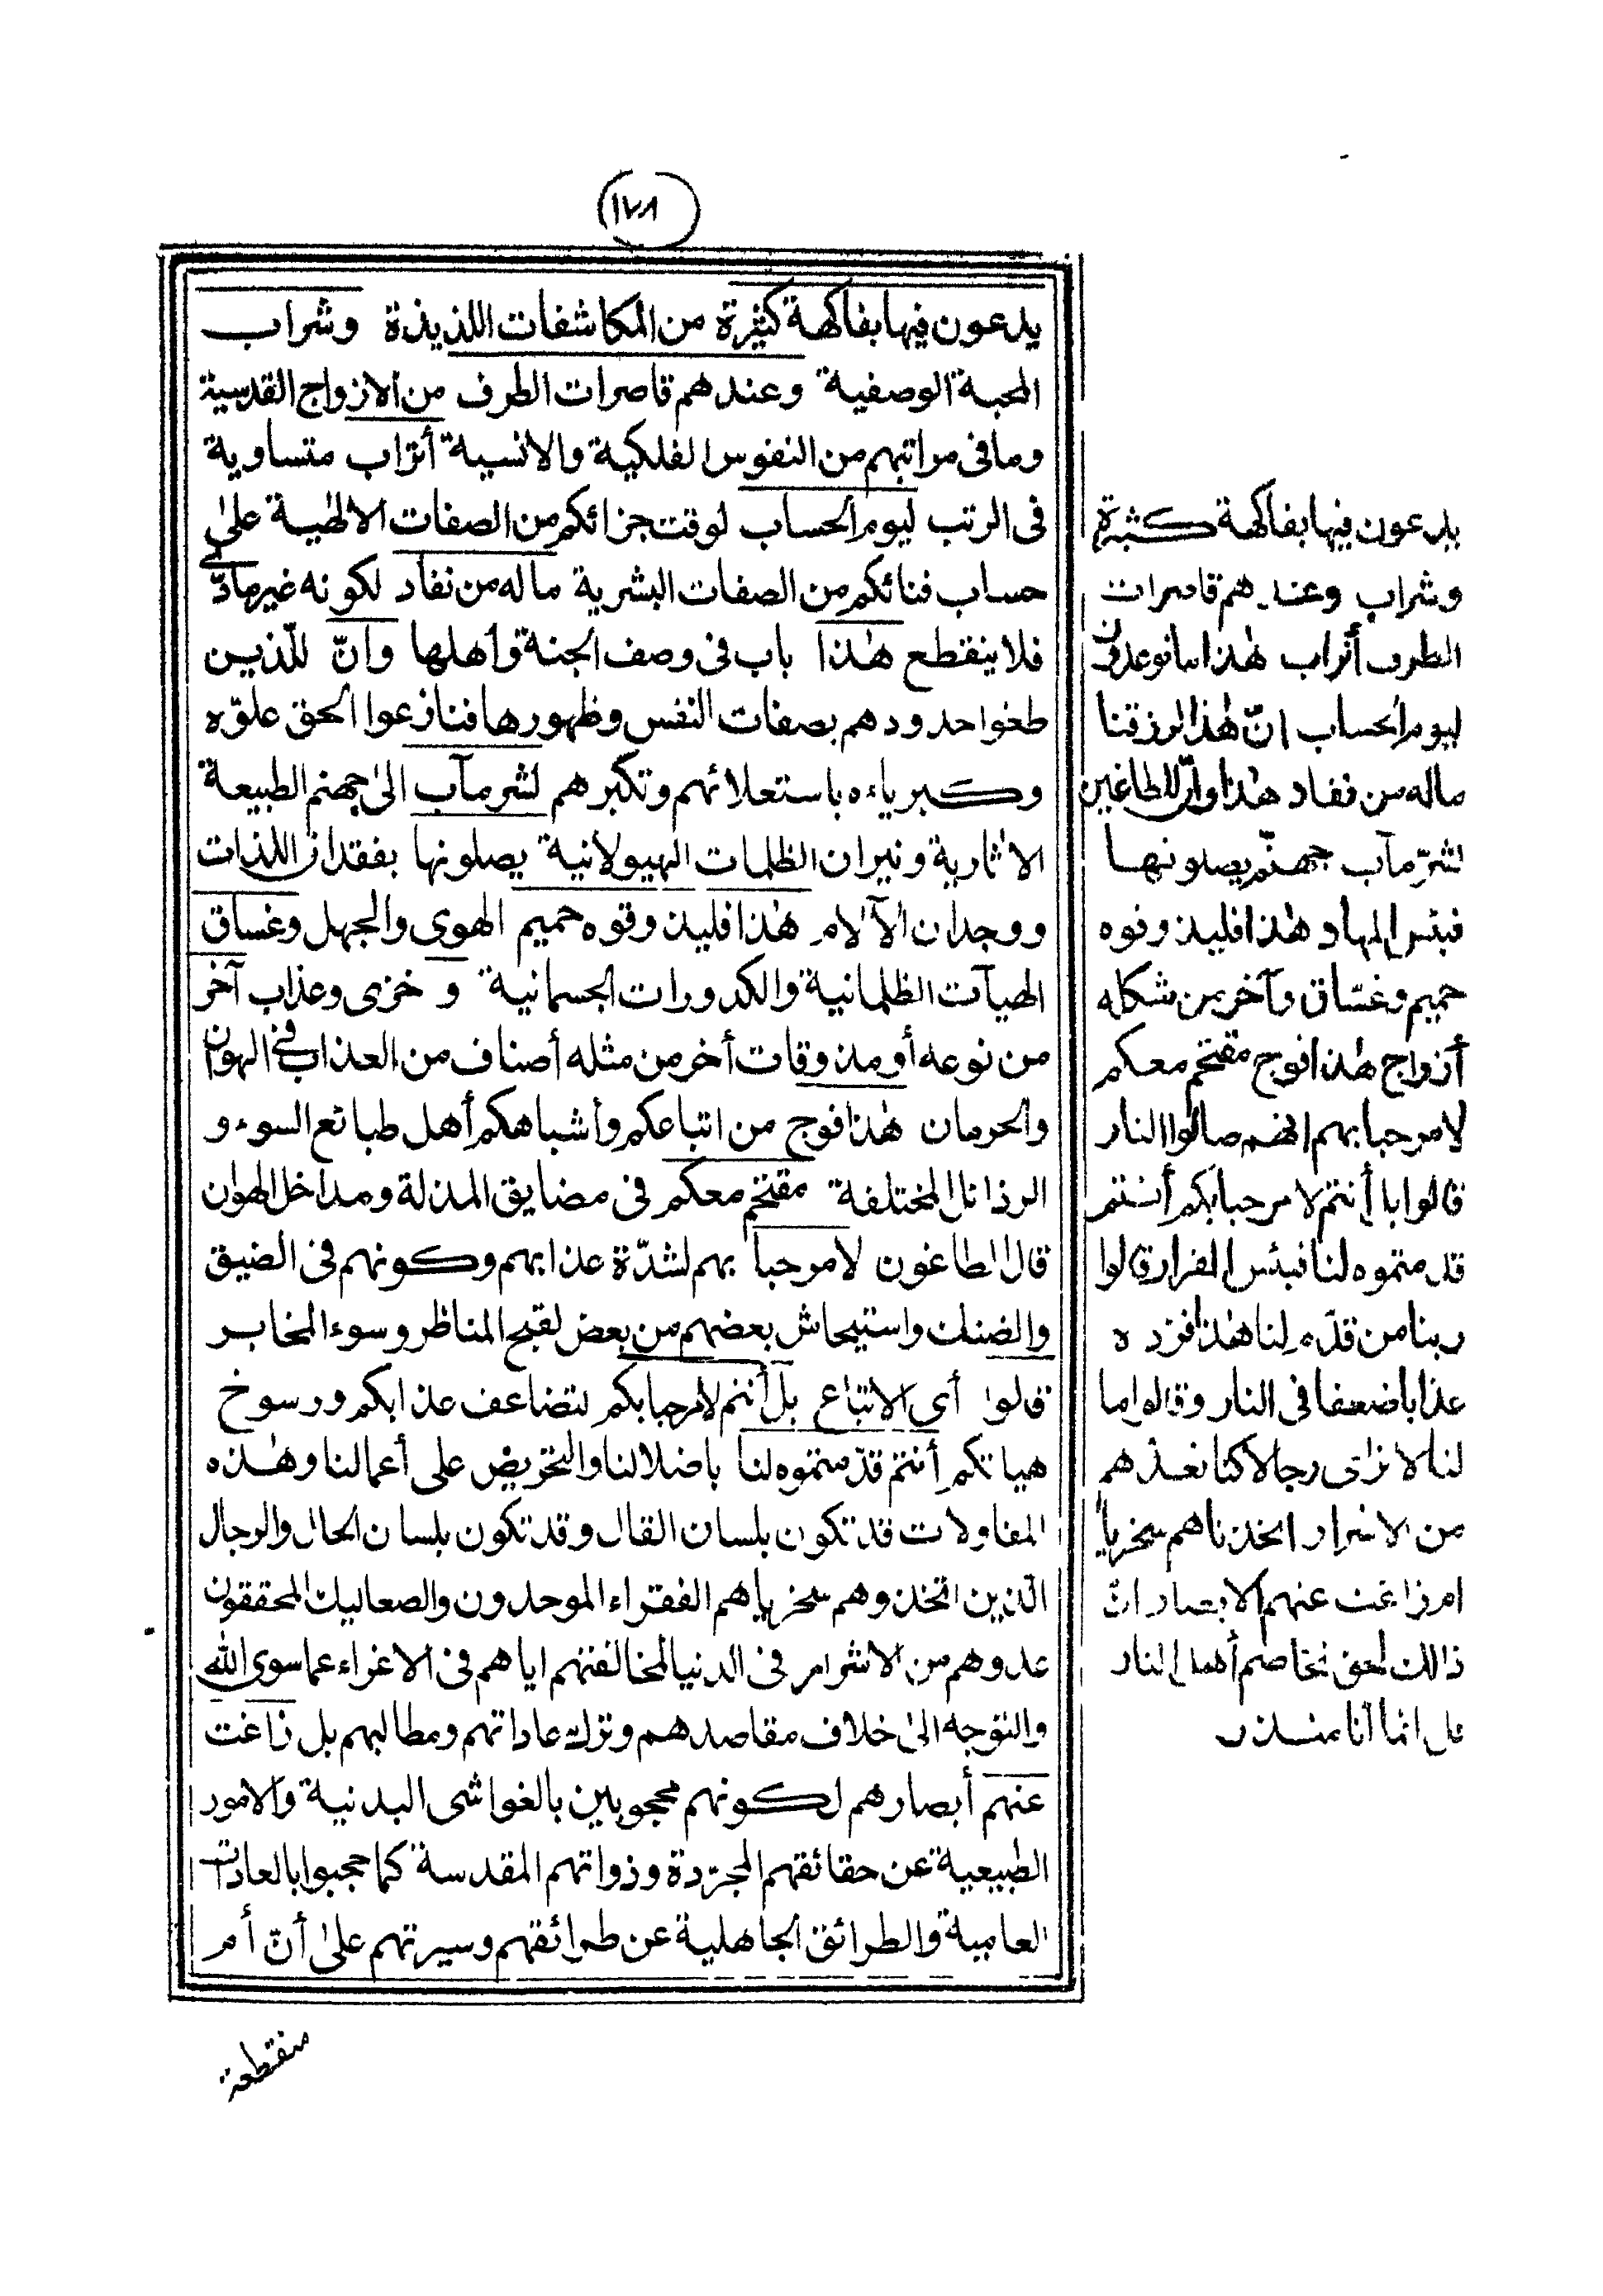 (١٧٨)
يدعون فيها بفاكهة كثيرة من المكاشفات اللذيذة وشراب
المحبة الوصفية وعندهم قاصرات الطرف من الازواج القدسية
وما فى مراتبهم من النفوس الفلكية والانسية أتراب متساوية
فى الرتب ليوم الحساب لوقت جزائكم من الصفات الالٰهية علىٰ
حساب فنائكم من الصفات البشرية ماله من نفاد لكونه غير مادّى
فلا ينقطع هٰذا باب فى وصف الجنة وأهلها وانّ للّذين
طغوا حدودهم بصفات النفس وظهورها فنازعوا الحق علوّه
وكبرياءه باستعلائهم وتكبرهم لشر مآب الىٰ جهنم الطبيعة
الاثارية ونيران الظلمات الهيولانية يصلونها بفقدان اللذات
ووجدان الآلام هٰذا فليذوقوه حميم الهوى والجهل وغساق
الهيآت الظلمانية والكدورات الجسمانية و خزى وعذاب آخر
من نوعه أو مذوقات أخر من مثله أصناف من العذاب فى الهوان
والحرمان هٰذا فوج من اتباعكم وأشباهكم أهل طبائع السوء و
الرذائل المختلفة مقتحم معكم فى مضايق المذلة ومداخل الهوان
قال الطاغون لا مرحبا بهم لشدّة عذابهم وكونهم فى الضيق
والضنك واستيحاش بعضهم من بعض لقبح المناظر وسوء المخابر
قالوا أى الاتباع بل أنتم لا مرحبا بكم لتضاعف عذابكم ورسوخ
هيأتكم أنتم قدّمتموه لنا باضلالنا والتحريض على أعمالنا وهٰذه
المقاولات قد تكون بلسان القال وقد تكون بلسان الحال والرجال
الّذين اتخذوهم سخريا هم الفقراء الموحدون والصعاليك المحققون
عدوهم من الاشرار فى الدنيا لمخالفتهم اياهم فى الاغراء عما سوى اللّٰه
والتوجه الىٰ خلاف مقاصدهم وترك عاداتهم ومطالبهم بل زاغت
عنهم أبصارهم لكونهم محجوبين بالغواشى البدنية والامور
الطبيعية عن حقائقهم المجرّدة وذواتهم المقدسة كما حجبوا بالعادات
العامية والطرائق الجاهلية عن طرائقهم وسيرتهم علىٰ أنّ أم
منقطعة
يدعون فيها بفاكهة كثيرة
وشراب وعندهم قاصرات
الطرف أتراب هٰذا ما توعدون
ليوم الحساب انّ هٰذا لرزقنا
ماله من نفاد هٰذا وانّ للطاغين
لشرّ مآب جهنّم يصلونها
فبئس المهاد هٰذا فليذوقوه
حميم وغسّاق وآخر من شكله
أزواج هٰذا فوج مقتحم معكم
لا مرحبا بهم انهم صالوا النار
قالوا بل أنتم لا مرحبا بكم أنتم
قدمتموه لنا فبئس القرار قالوا
ربنا من قدّم لنا هٰذا فزده
عذابا ضعفا فى النار وقالوا ما
لنا لا نرٰى رجالا كنا نعدهم
من الاشرار اتخذناهم سخريا
ام زاغت عنهم الابصار انّ
ذالك لحق تخاصم أهل النار
قل انّما أنا منذر